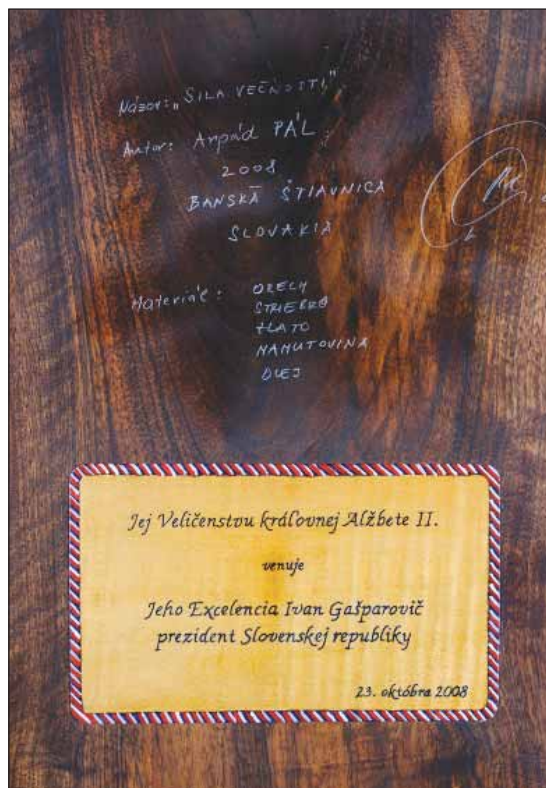 Názov: „SILA VEČNOSTI"
Autor: Arpád PÁL
2008
BANSKÁ ŠTIAVNICA
SLOVAKIA
Materiál: ORECH
STRIEBRO
ZLATO
MAMUTOVINA
OLEJ
Jej Veličenstvu kráľovnej Alžbete II.
venuje
Jeho Excelencia Ivan Gašparovič
prezident Slovenskej republiky
23. októbra 2008